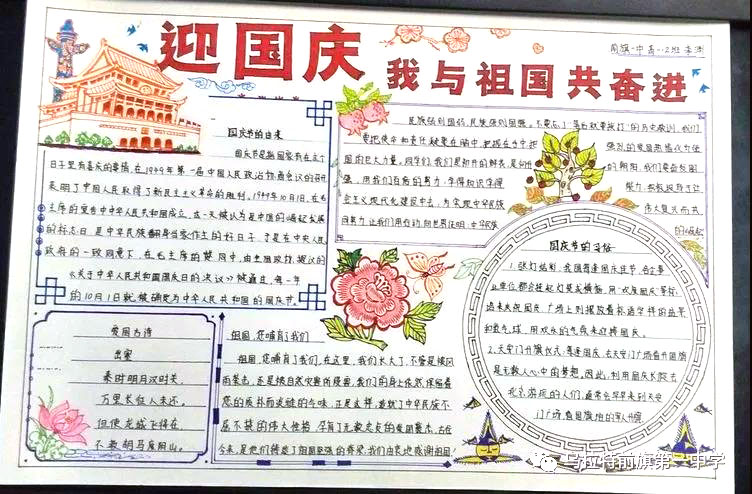 迎国庆
我与祖国共奋进
前旗一中高一2班
国庆节的由来
国庆节是每个国家都有的
日子里有喜庆的事情,在1949年第一届中国人民政治协商会议的召开
表明了中国人民取得了新民主主义革命的胜利。1949年10月1日,在毛
主席的宣告中中华人民共和国成立。这一天被认为是中国的崛起发展
的标志日,是中华民族翻身当家作主的好日子,于是在中央人民
政府的一致同意下,在毛主席的赞同中,由主席政府提议的
《关于中华人民共和国国庆日的决议》被通过,每一年
的10月1日就被确定为中华人民共和国的国庆节。
民族强则国强,民族强则国强。不要忘了"落后就要挨打"的历史教训,我们
要把使命和责任
国的巨大力量。同学们,我们是初升的
用我们百倍的努力,学得知识
会主义现代化建设中去,为实现中华民族
伟大复兴而共
国庆节的习俗
1.张灯结彩,我国每逢国庆佳节,各企事
业单位都会挂起灯笼或横幅,用"欢度国庆"等标
语来庆祝国庆。广场上则摆放着标语字样的盆景
和气球,用欢乐的气氛来迎接国庆。
2.天安门升旗仪式:每逢国庆,去天安门广场看升国旗
是无数人心中的梦想。因此,利用国庆长假去
北京游玩的人们,通常会早早来到天安
门广场,看国旗班的军人升旗。
爱国古诗
出塞
秦时明月汉时关,
万里长征人未还。
但使龙城飞将在,
不教胡马度阴山。
祖国,您哺育了我们
祖国,您哺育了我们,在这里,我们长大了,不管是被风
雨袭击,还是被自然灾害所侵袭,我们的身上依然保留着
您的质朴而淡雅的气味,正是这样,造就了中华民族不
屈不挠的伟大性格,孕育了无数忠贞的爱国豪杰,古往
今来,是他们铸造了祖国坚强的脊梁,我们由衷地感谢祖国!
乌拉特前旗第一中学